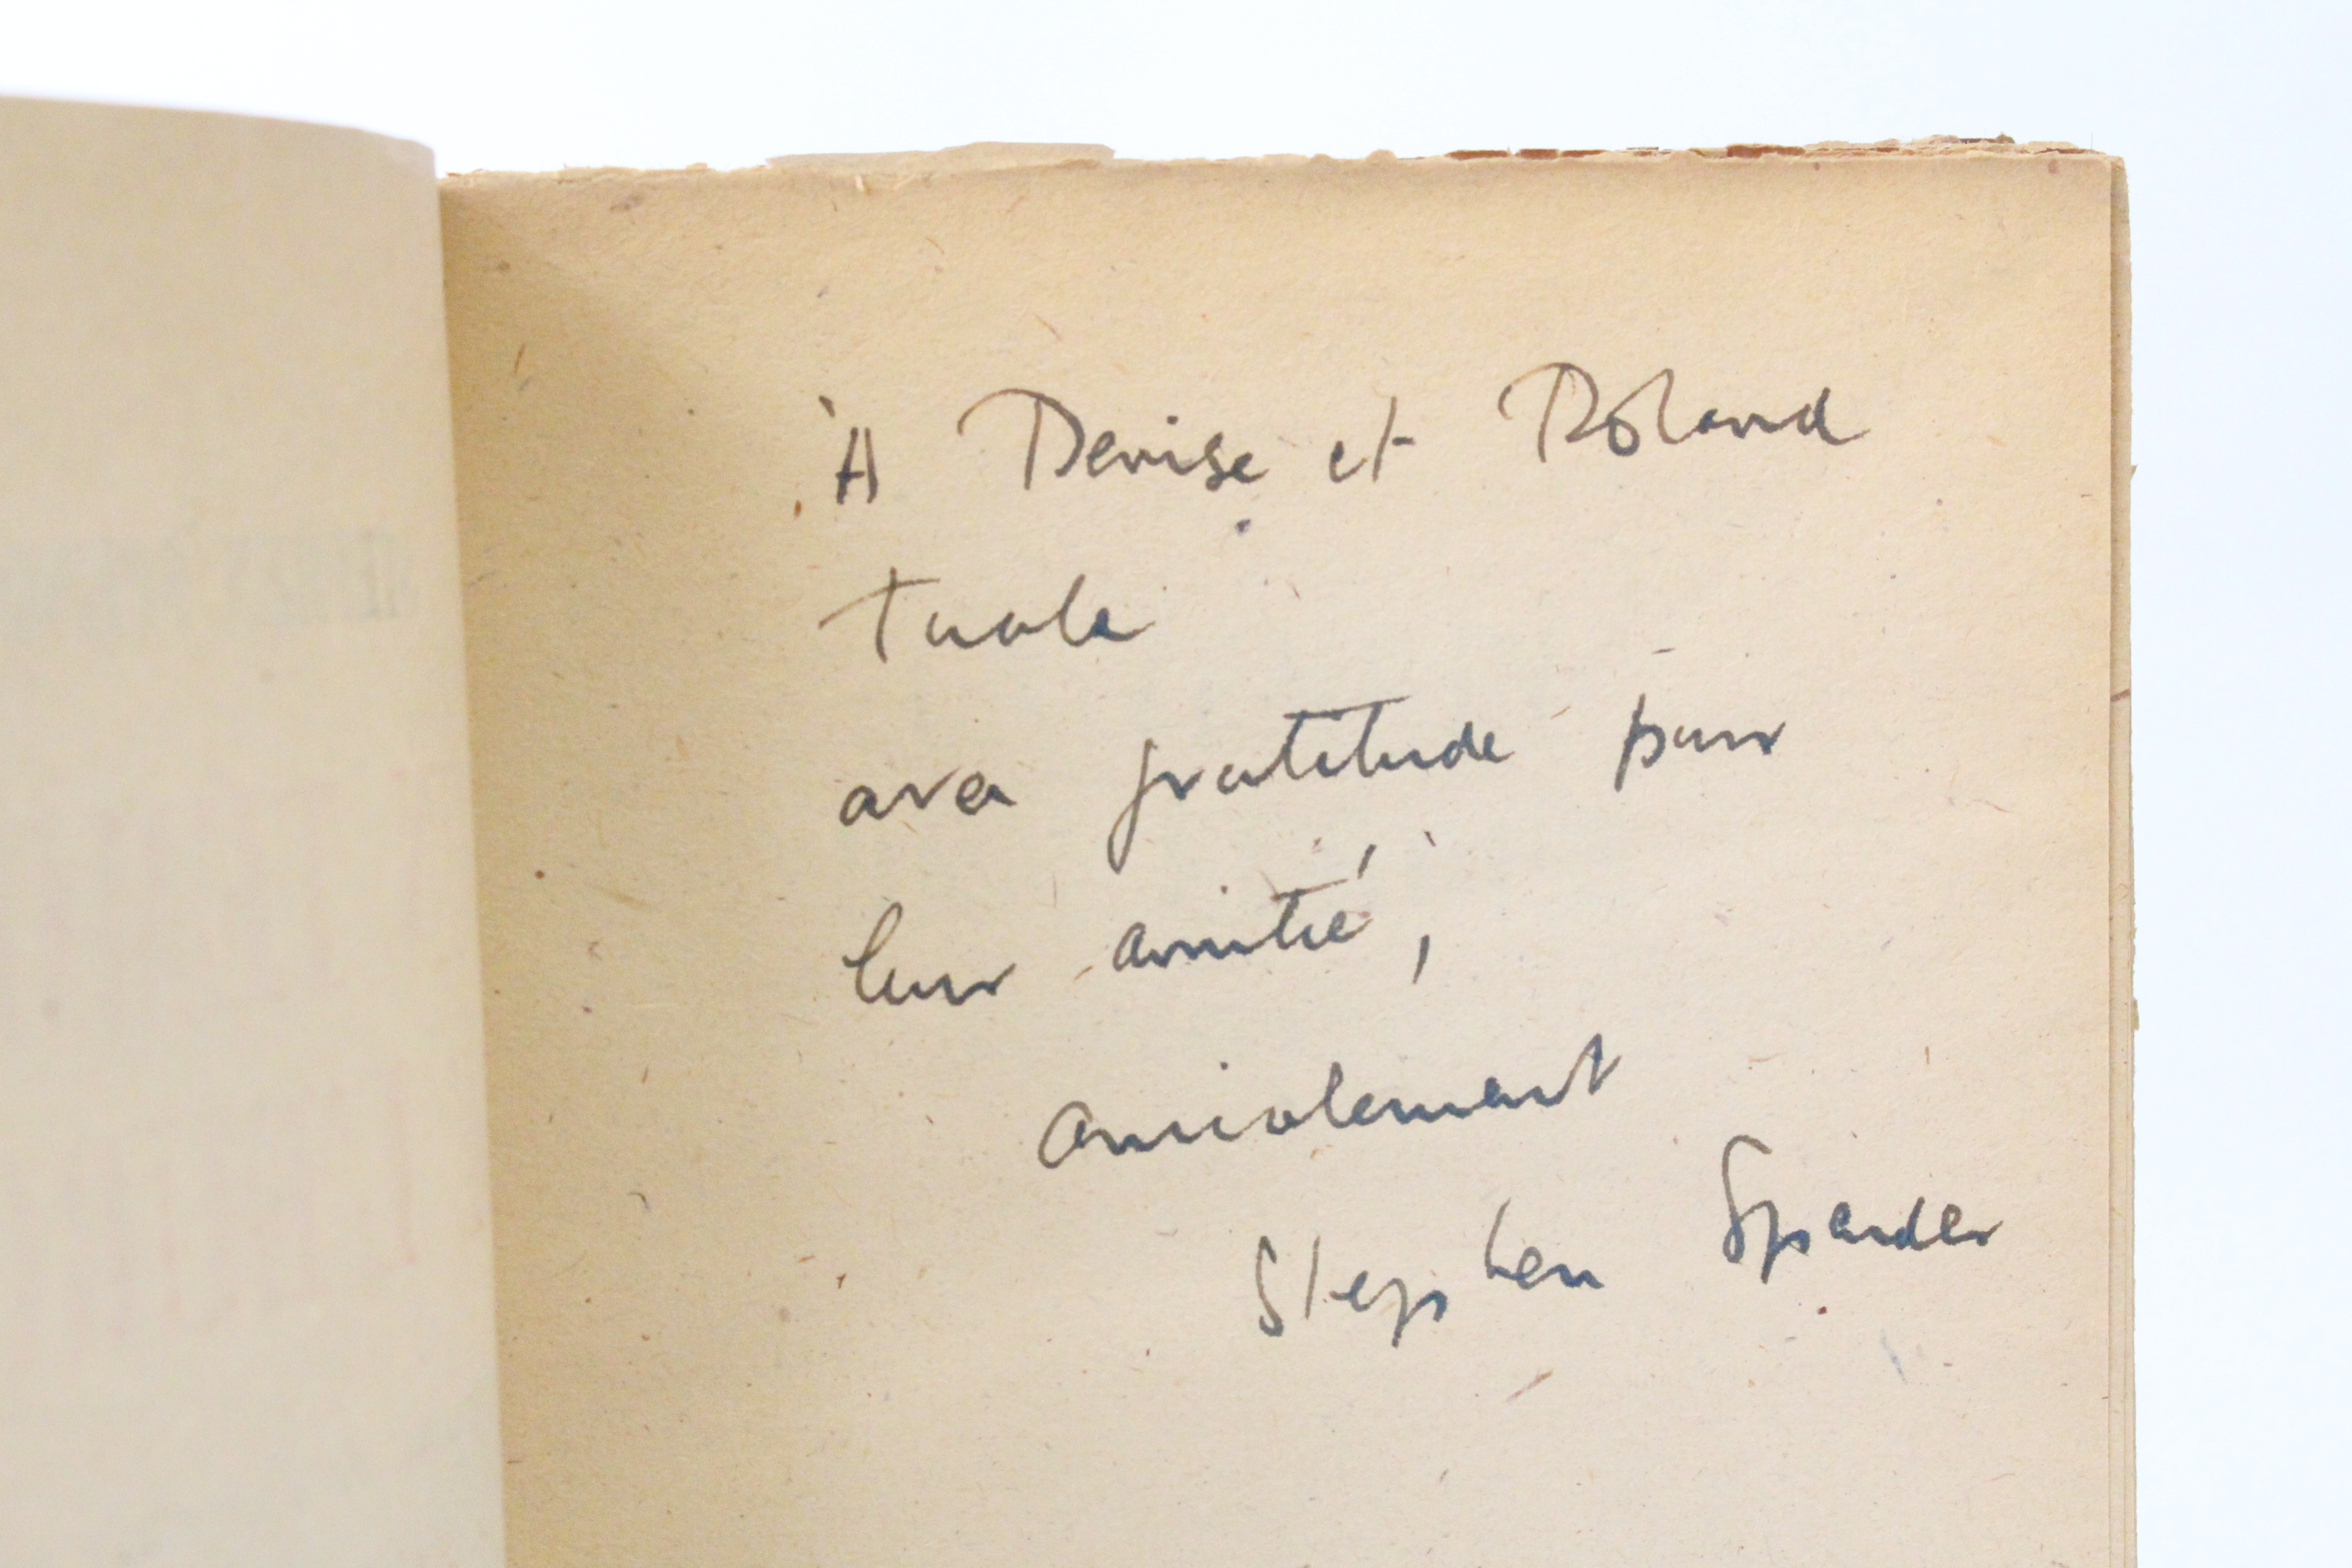 À Denise et Roland
Tuale
avec gratitude pour
leur amitié,
amicalement
Stephen Spender